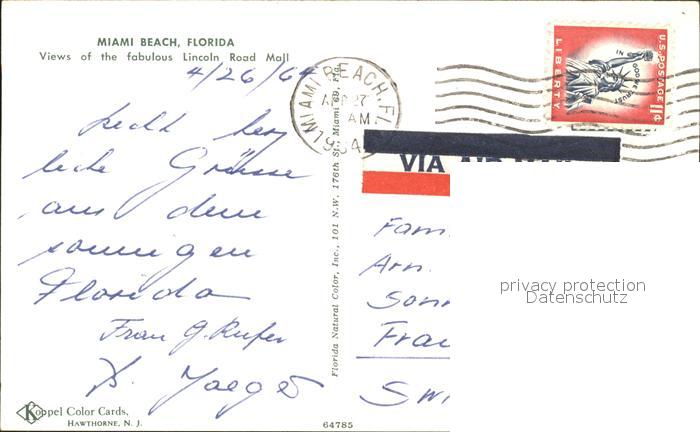 MIAMI BEACH, FLORIDA
Views of the fabulous Lincoln Road Mall
4/26/64
Recht herz
liche Grüsse
aus dem
sonnigen
Florida
Frau G. Rufer
Koppel Color Cards,
HAWTHORNE, N. J.
64785
Florida Natural Color, Inc., 101 N.W. 176th St., Miami 69, Fla.
MIAMI BEACH, FL
27
AM
1964
U.S. POSTAGE
LIBERTY
IN GOD WE TRUST
11¢
VIA AIR MAIL
Fam.
Arn.
Sonn
Frau
Swi
privacy protection
Datenschutz